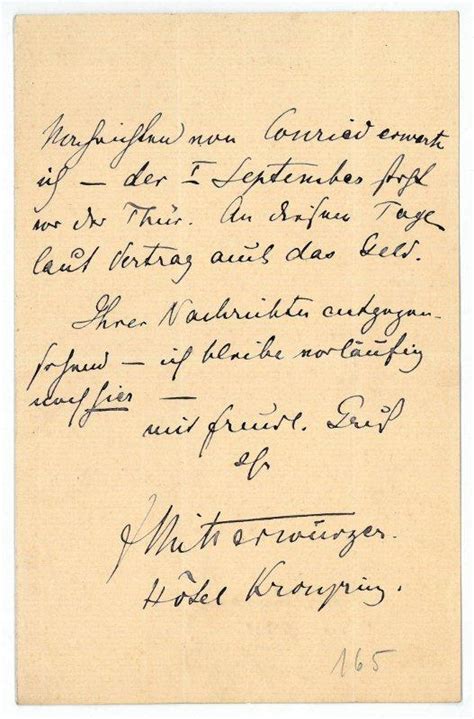 Nachrichten von Conried erwarte
ich — der I September steht
vor der Thür. An diesem Tage
laut Vertrag auch das Geld.
Ihren Nachrichten entgegen-
sehend — ich bleibe vorläufig
noch hier —
mit freundl. Gruß
Ihr
FMitterwurzer.
Hôtel Kronprinz.
165